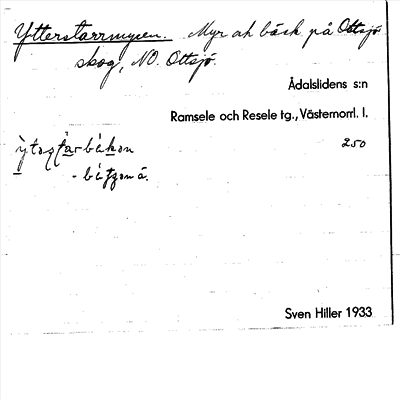 Ytterstarrmyren. Myr ah bäck på Ottsjö
skog, NO. Ottsjö.
Ådalslidens s:n
Ramsele och Resele tg., Västernorrl. l.
250
Sven Hiller 1933